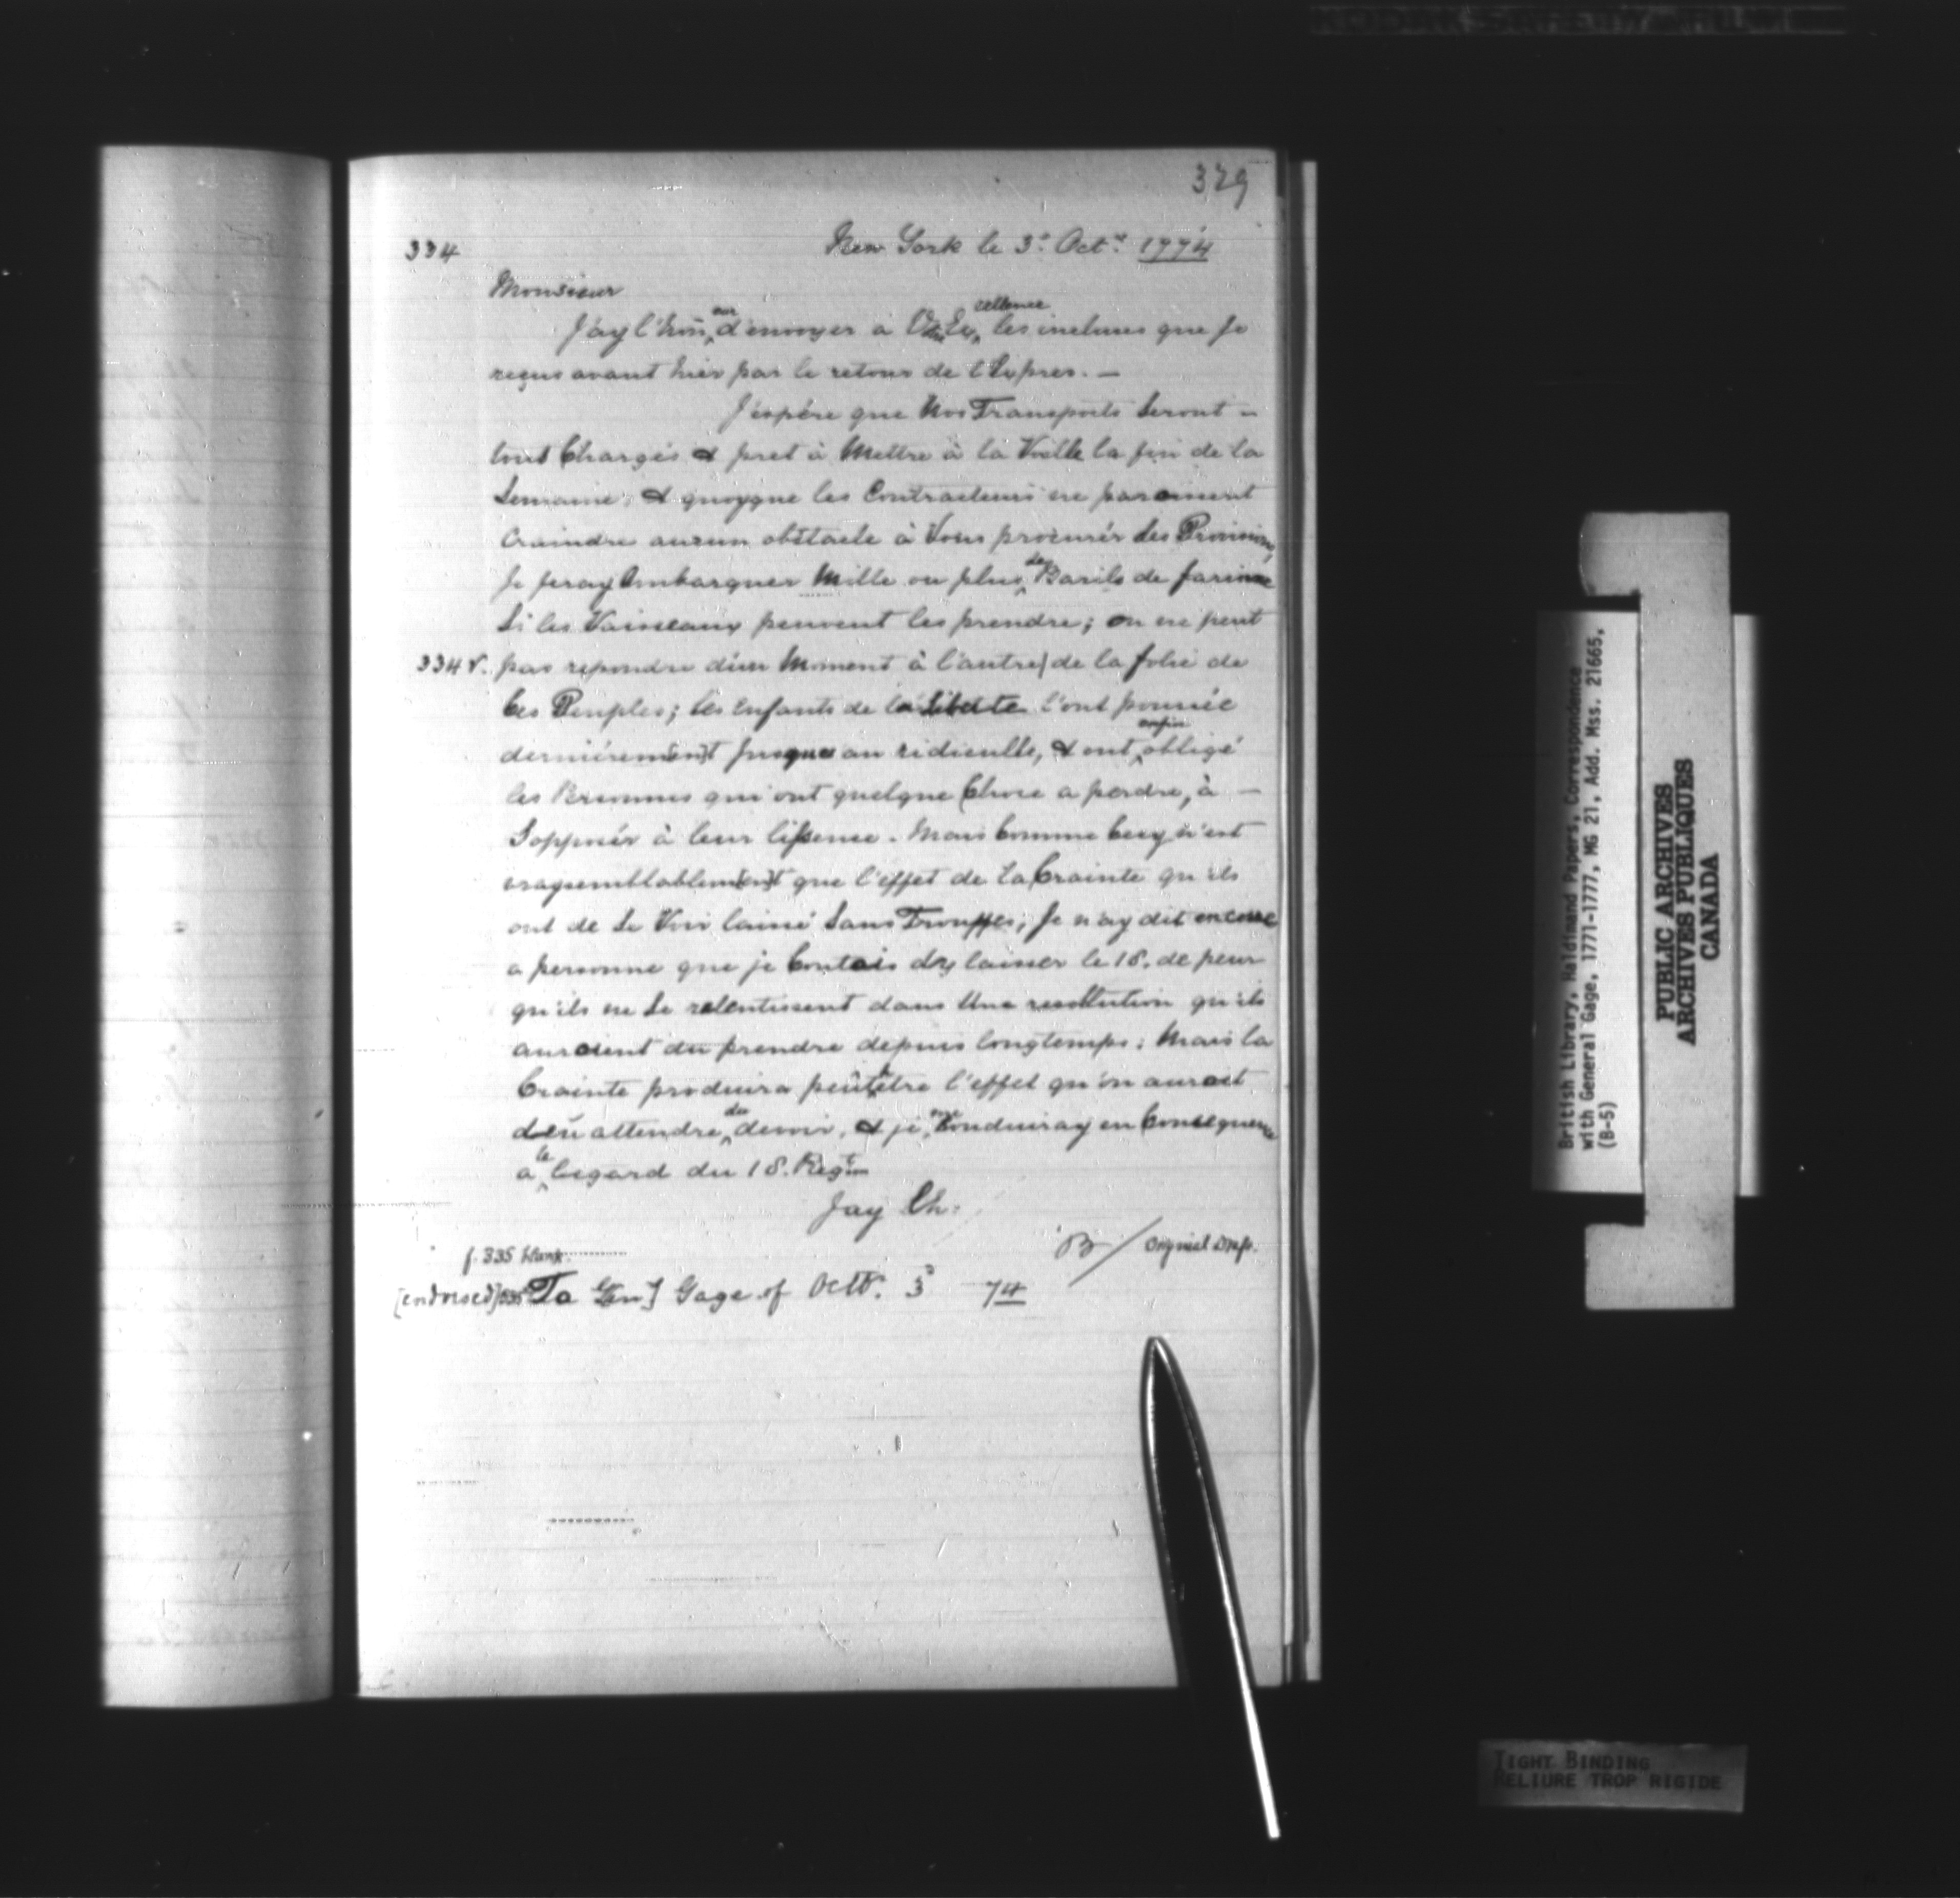 329
334 New York le 3e Octre 1774
Monsieur
J'ay l'hon̄eur d'envoyer à Votre Excellence les incluses que Je
reçus avant hier par le retour de l'Expres. —
J'espére que Nos Transports Seront -
tout Chargés & pret à Mettre à la Voille la fin de la
Semaine; & quoyque les Contracteurs ne paroissent
Craindre aucun obstacle à Vous procurér des Provisions,
Je feray Embarquer Mille ou plus de Barils de farinne
Si les Vaisseaux peuvent les prendre; on ne peut
334 v. pas repondre d'un Moment à l'autre| de la folie de
Ces Peuples; les Enfants de la Liberte l'ont poussée
derniérem[en]t jusques au ridiculle, & ont enfin obligé
les Personnes qui ont quelque Chose a perdre, à —
S'opposér à leur lissence. Mais Comme Cecy n'est
vraysemblablem[en]t que l'effet de La Crainte qu'ils
ont de Se Voir laissé Sans Trouppes, Je n'ay dit encore
a personne que je Contois d'y laisser le 18. de peur
qu'ils ne Se ralentissent dans Une resollution qu'ils
auroient du prendre depuis longtemps; Mais la
Crainte produira peutêtre l'effet qu'on auroit
deu attendre du devoir, & je me Conduiray en Consequence
a le'egard du 18. Regim
Jay Ch:
f. 335 blank
B/ Original Draft.
[endorsed] 335v To Gen[l] Gage of Octr. 3d 74
British Library, Haldimand Papers, Correspondence
with General Gage, 1771-1777, MG 21, Add. Mss. 21665,
(B-5)
PUBLIC ARCHIVES
ARCHIVES PUBLIQUES
CANADA
TIGHT BINDING
RELIURE TROP RIGIDE